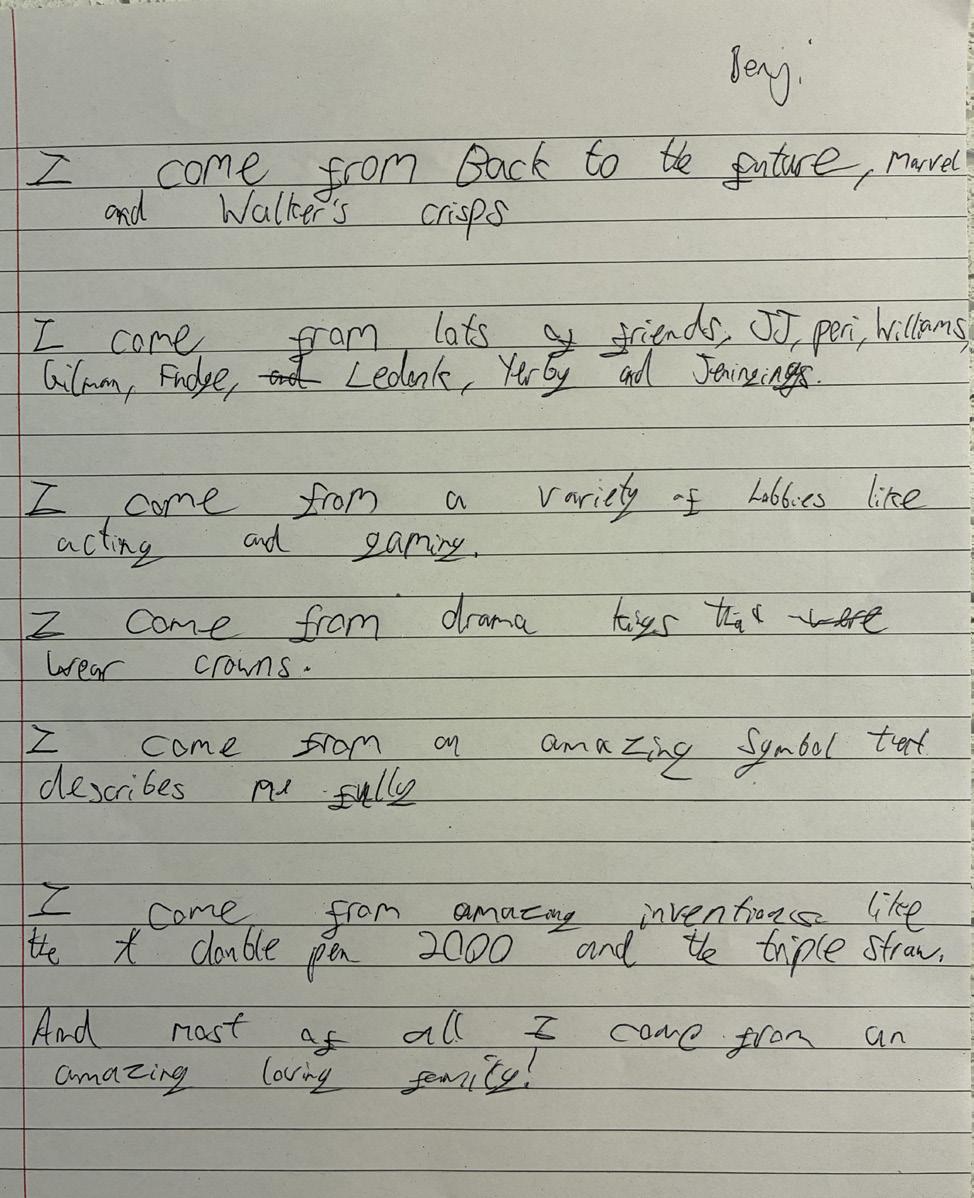 Benji
I come from Back to the future, Marvel
and Walker's crisps
I come from lots of friends, JJ, peri, Williams,
Gilman, Fudge, and Ledank, Yerby and Jenningings.
I come from a variety of hobbies like
acting and gaming.
I come from drama kings that were
wear crowns.
I come from an amazing symbol that
describes me fully
I come from amazing inventions like
the t double pen 2000 and the triple straw.
And most of all I come from an
amazing loving family!